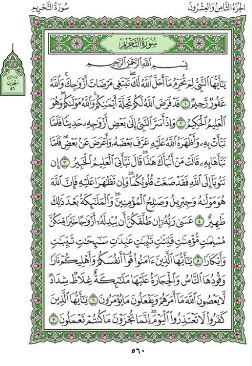 الجُزْءُ الثَّامِنُ وَالعِشْرُونَ
سُورَةُ التَّحْرِيمِ
سُورَةُ التَّحْرِيمِ
بِسْمِ ٱللَّهِ ٱلرَّحْمَٰنِ ٱلرَّحِيمِ
يَٰٓأَيُّهَا ٱلنَّبِىُّ لِمَ تُحَرِّمُ مَآ أَحَلَّ ٱللَّهُ لَكَ تَبْتَغِى مَرْضَاتَ أَزْوَٰجِكَ وَٱللَّهُ
غَفُورٌ رَّحِيمٌ ١ قَدْ فَرَضَ ٱللَّهُ لَكُمْ تَحِلَّةَ أَيْمَٰنِكُمْ وَٱللَّهُ مَوْلَىٰكُمْ وَهُوَ
ٱلْعَلِيمُ ٱلْحَكِيمُ ٢ وَإِذْ أَسَرَّ ٱلنَّبِىُّ إِلَىٰ بَعْضِ أَزْوَٰجِهِۦ حَدِيثًا فَلَمَّا
نَبَّأَتْ بِهِۦ وَأَظْهَرَهُ ٱللَّهُ عَلَيْهِ عَرَّفَ بَعْضَهُۥ وَأَعْرَضَ عَنۢ بَعْضٍ فَلَمَّا
نَبَّأَهَا بِهِۦ قَالَتْ مَنْ أَنۢبَأَكَ هَٰذَا قَالَ نَبَّأَنِىَ ٱلْعَلِيمُ ٱلْخَبِيرُ ٣
إِن تَتُوبَآ إِلَى ٱللَّهِ فَقَدْ صَغَتْ قُلُوبُكُمَا وَإِن تَظَٰهَرَا عَلَيْهِ فَإِنَّ ٱللَّهَ
هُوَ مَوْلَىٰهُ وَجِبْرِيلُ وَصَٰلِحُ ٱلْمُؤْمِنِينَ وَٱلْمَلَٰٓئِكَةُ بَعْدَ ذَٰلِكَ
ظَهِيرٌ ٤ عَسَىٰ رَبُّهُۥٓ إِن طَلَّقَكُنَّ أَن يُبْدِلَهُۥٓ أَزْوَٰجًا خَيْرًا مِّنكُنَّ
مُسْلِمَٰتٍ مُّؤْمِنَٰتٍ قَٰنِتَٰتٍ تَٰٓئِبَٰتٍ عَٰبِدَٰتٍ سَٰٓئِحَٰتٍ ثَيِّبَٰتٍ
وَأَبْكَارًا ٥ يَٰٓأَيُّهَا ٱلَّذِينَ ءَامَنُوا۟ قُوٓا۟ أَنفُسَكُمْ وَأَهْلِيكُمْ نَارًا
وَقُودُهَا ٱلنَّاسُ وَٱلْحِجَارَةُ عَلَيْهَا مَلَٰٓئِكَةٌ غِلَاظٌ شِدَادٌ
لَّا يَعْصُونَ ٱللَّهَ مَآ أَمَرَهُمْ وَيَفْعَلُونَ مَا يُؤْمَرُونَ ٦ يَٰٓأَيُّهَا ٱلَّذِينَ
كَفَرُوا۟ لَا تَعْتَذِرُوا۟ ٱلْيَوْمَ إِنَّمَا تُجْزَوْنَ مَا كُنتُمْ تَعْمَلُونَ ٧
٥٦٠